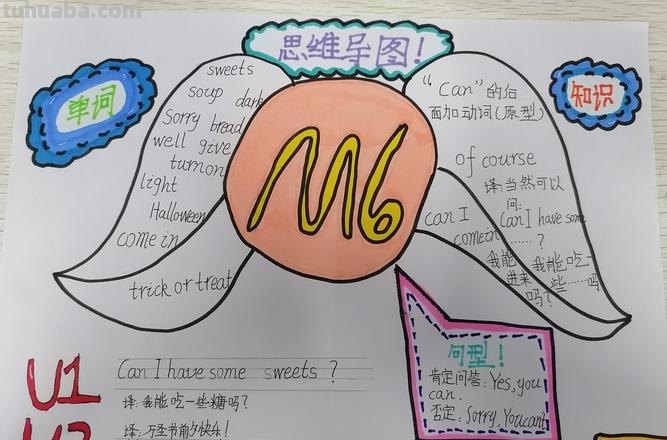 tuhuaba.com
思维导图!
单词
sweets
soup dark
Sorry bread
well give
turn on
light
Halloween
come in
trick or treat
M6
"Can"的后
面加动词(原型)
of course
译:当然可以
问:
can I
come in
Can I have some
......?
我能
进来
吗?
我能吃一
些......吗
知识
U1
Can I have some sweets ?
译:我能吃一些糖吗?
译:万圣节前夕快乐!
句型!
肯定问答:Yes, you
can.
否定:Sorry, You can't